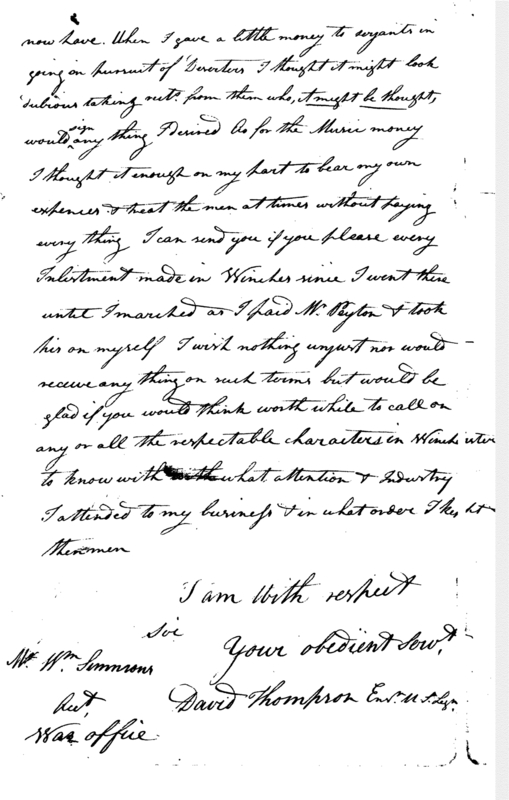 now have. When I gave a little money to serjants in
going in pursuit of Deserters I thought it might look
dubious taking rects. from them who, it might be thought,
would sign any thing I desired As for the Music money
I thought it enough on my part to bear my own
expences & treat the men at times without paying
every thing I can send you if you please every
Inlistment made in Winches since I went there
until I marched as I paid Mr. Peyton & took
his on myself I wish nothing unjust nor would
receive any thing on such terms but would be
glad if you would think worth while to call on
any or all the respectable characters in Winchester
to know with what attention & Industry
I attended to my business & in what order I kept
the men
I am With respect
Sir
Your obedient Servt.
Mr. Wm. Simmons
David Thompson Ens. U.S. Legn.
Acct.
War office